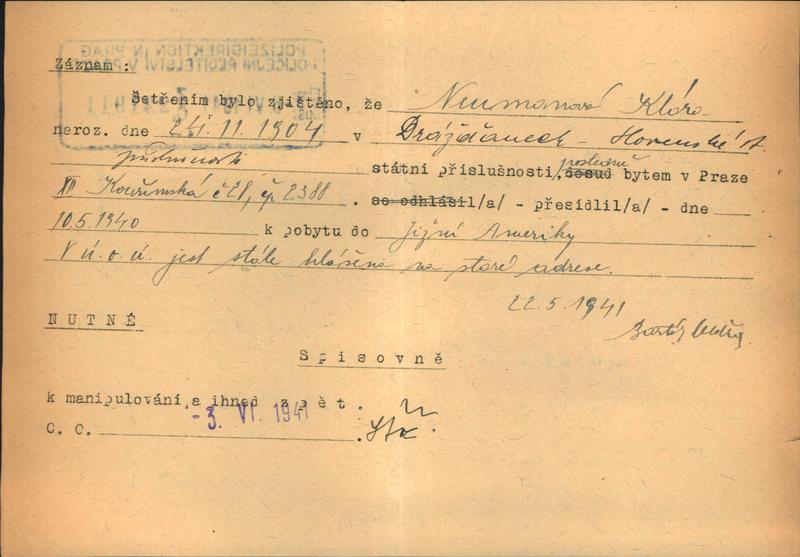 POLIZEIDIREKTION IN PRAG
POLICEJNÍ ŘEDITELSTVÍ V
Záznam :
Šetřením bylo zjištěno, že Neumanová Klára
naroz. dne 24. 11. 1904 v Drážďanech -
státní příslušnosti, dosud posledně bytem v Praze
XII Kouřimská č 28, čp. 2388 . se odhlásil/a/ - přesídlil/a/ - dne
10.5.1940 k pobytu do Jižní Ameriky
V ú.o.ú. jest stále hlášena na staré adrese.
22.5.1941
NUTNÉ
Spisovně
k manipulování a ihned zpět.
-3. VI. 1941
C. C.